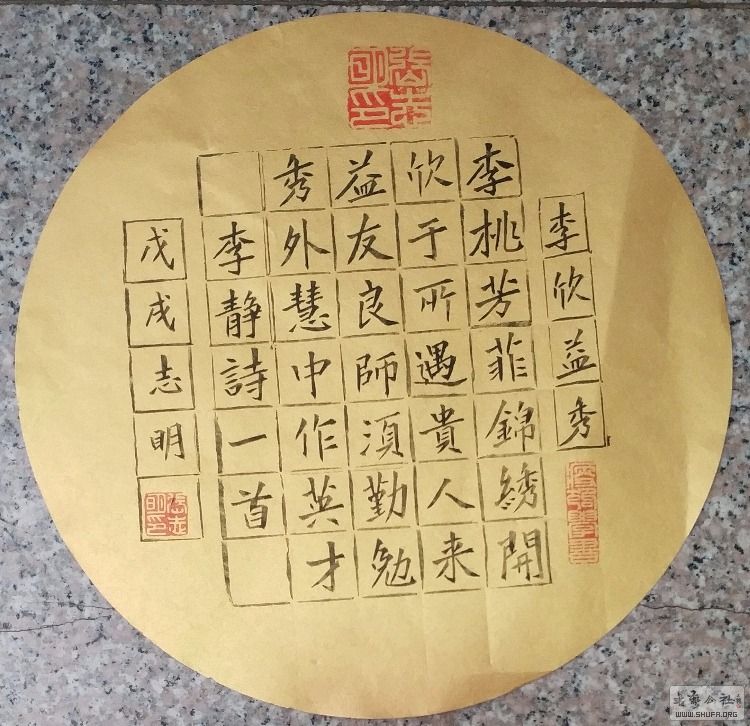 李欣益秀
李桃芳菲錦綉開
欣于所遇貴人来
益友良師須勤勉
秀外慧中作英才
李静詩一首
戊戌志明
張志明印
張志明印
WWW.SHUFA.ORG